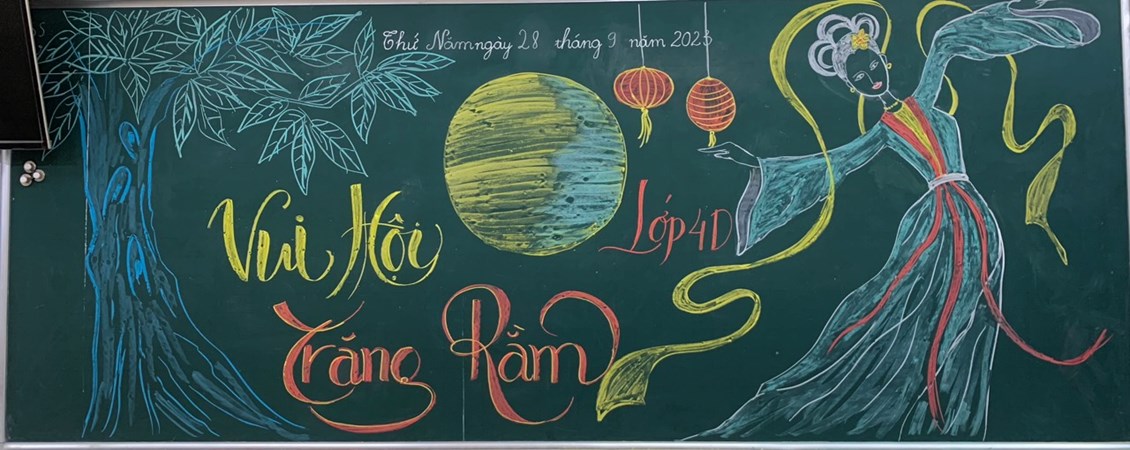 Thứ Năm ngày 28 tháng 9 năm 2023
Vui Hội
Lớp 4D
Trăng Rằm